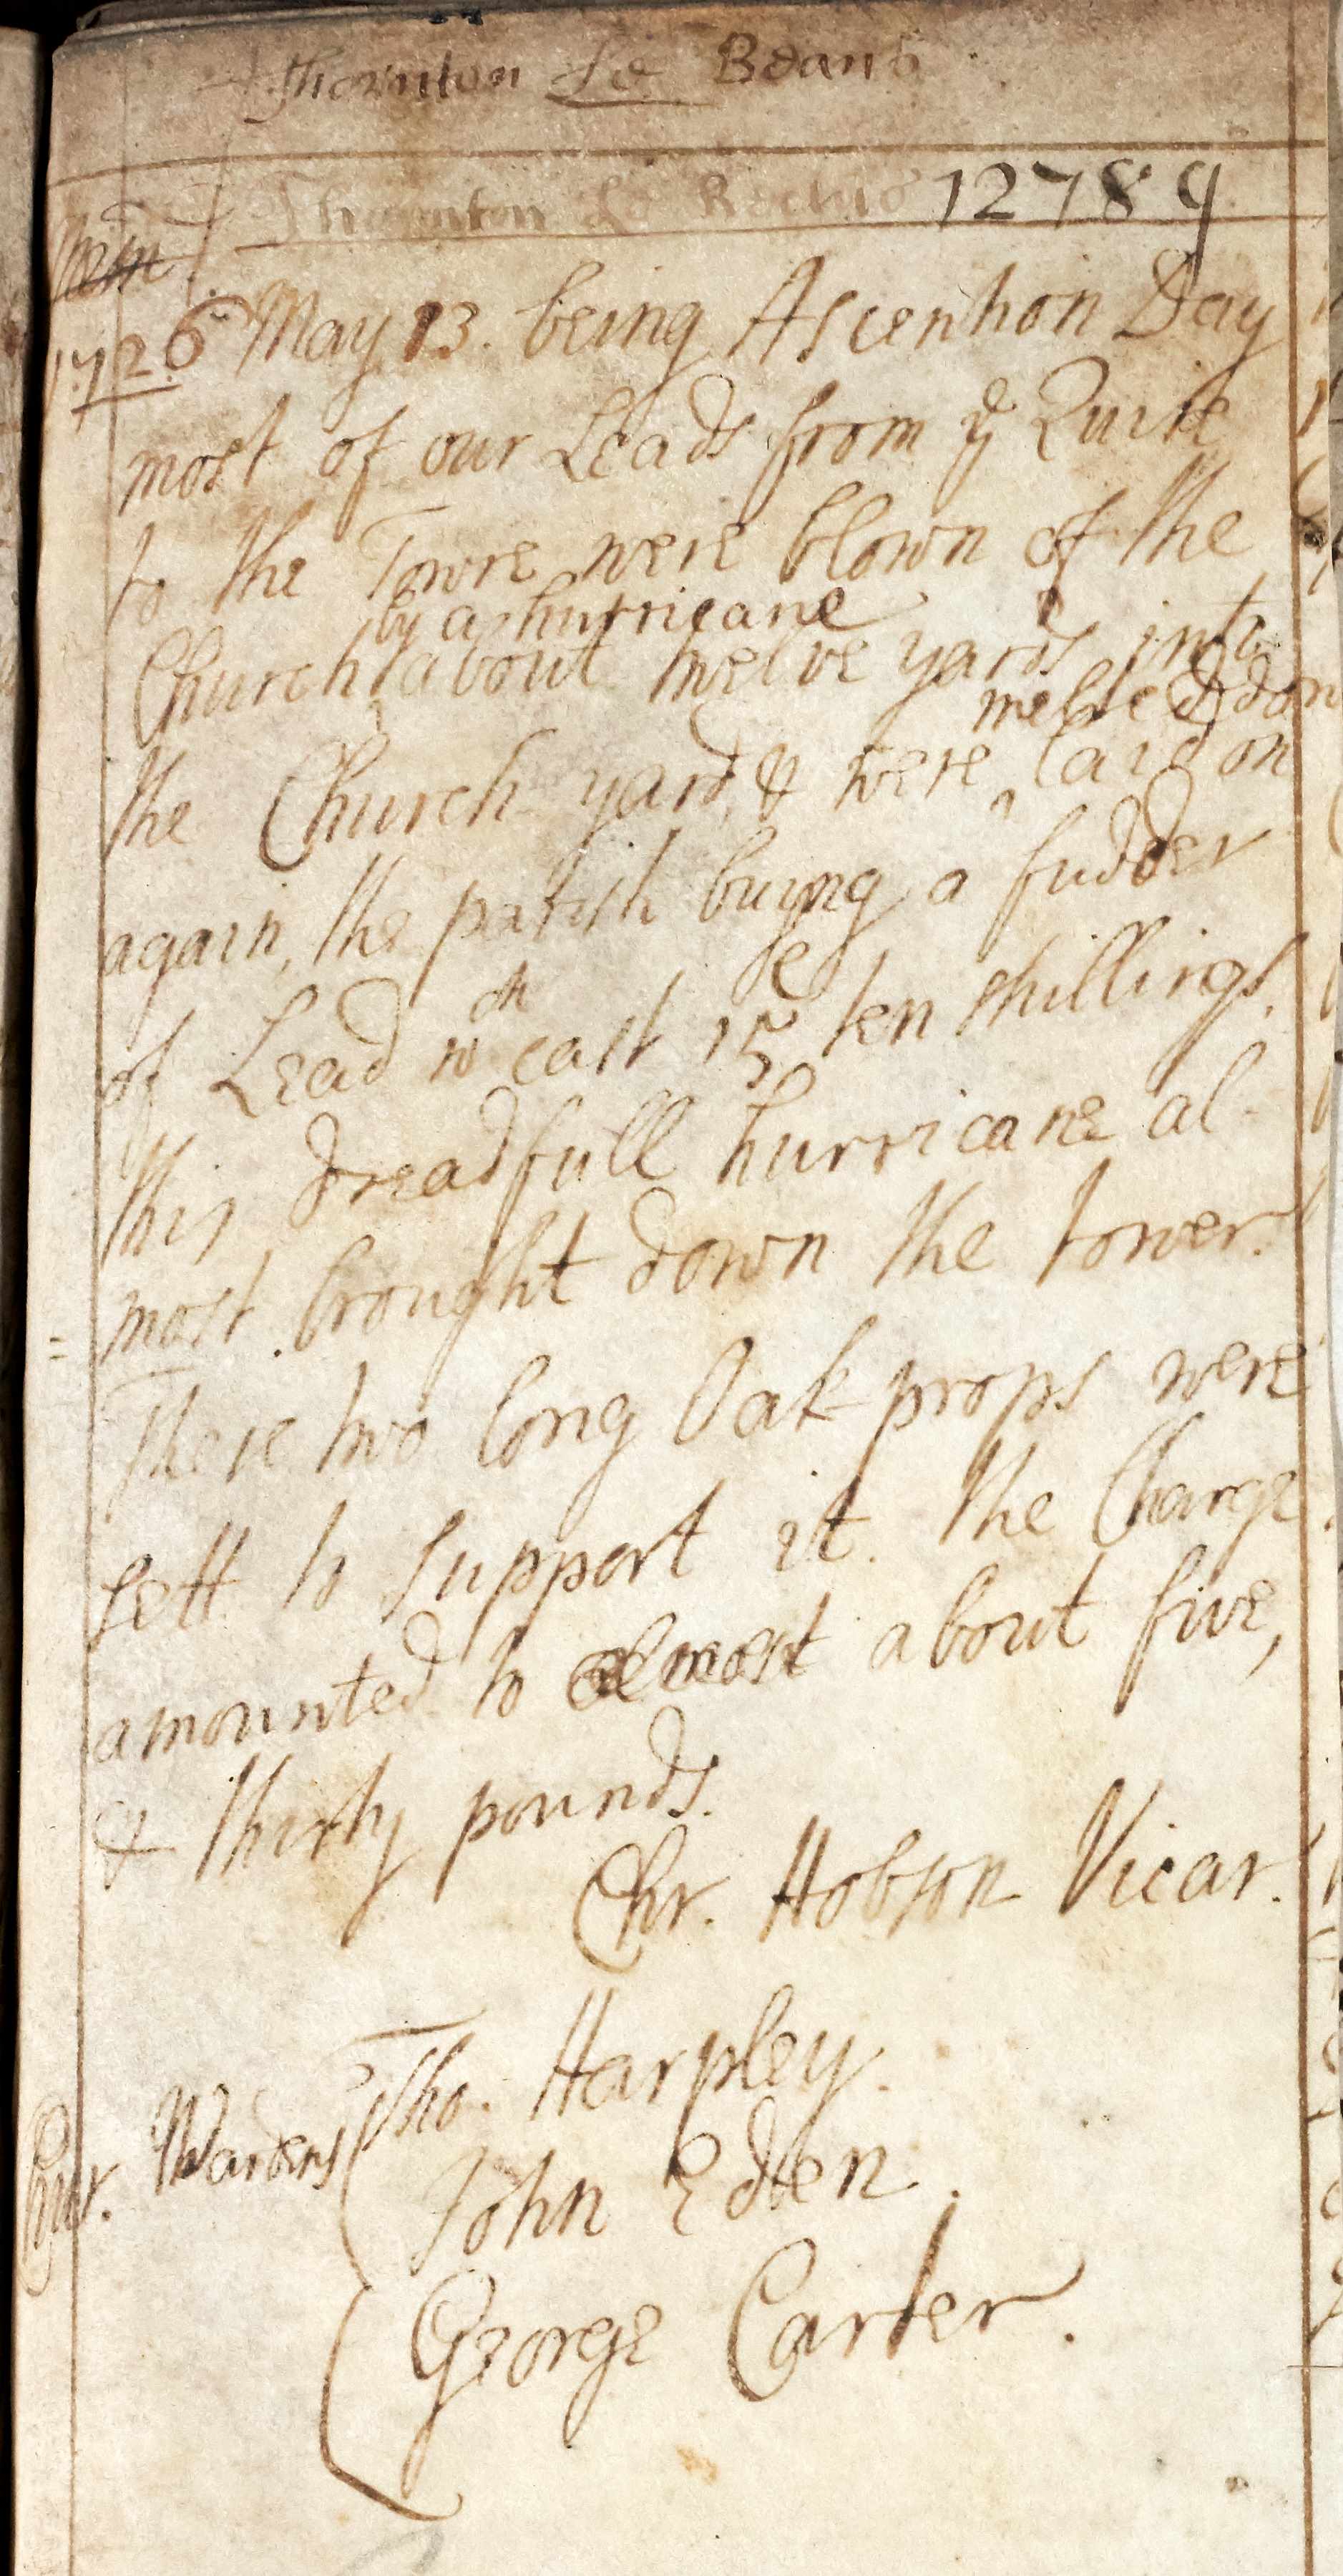 Thornton Le Beans
Thornton Le
12789
1726 May 13. being Ascention Day
most of our Leads from ye Quire
to the Towre were blown of the
by a hurricane
Church about twelve yards into
melted down
the Church yard, & were laid on
again, the parish buying a fudder
of Lead wch cast 15 ten shillings.
this dreadfull hurricane al-
most brought down the tower.
These two long Oak props were
sett to support it. the Charge
amounted to almost about five,
& thirty pounds.
Chr. Hobson Vicar.
Tho. Harpley.
Chur. Wardens
John Eden.
George Carter.